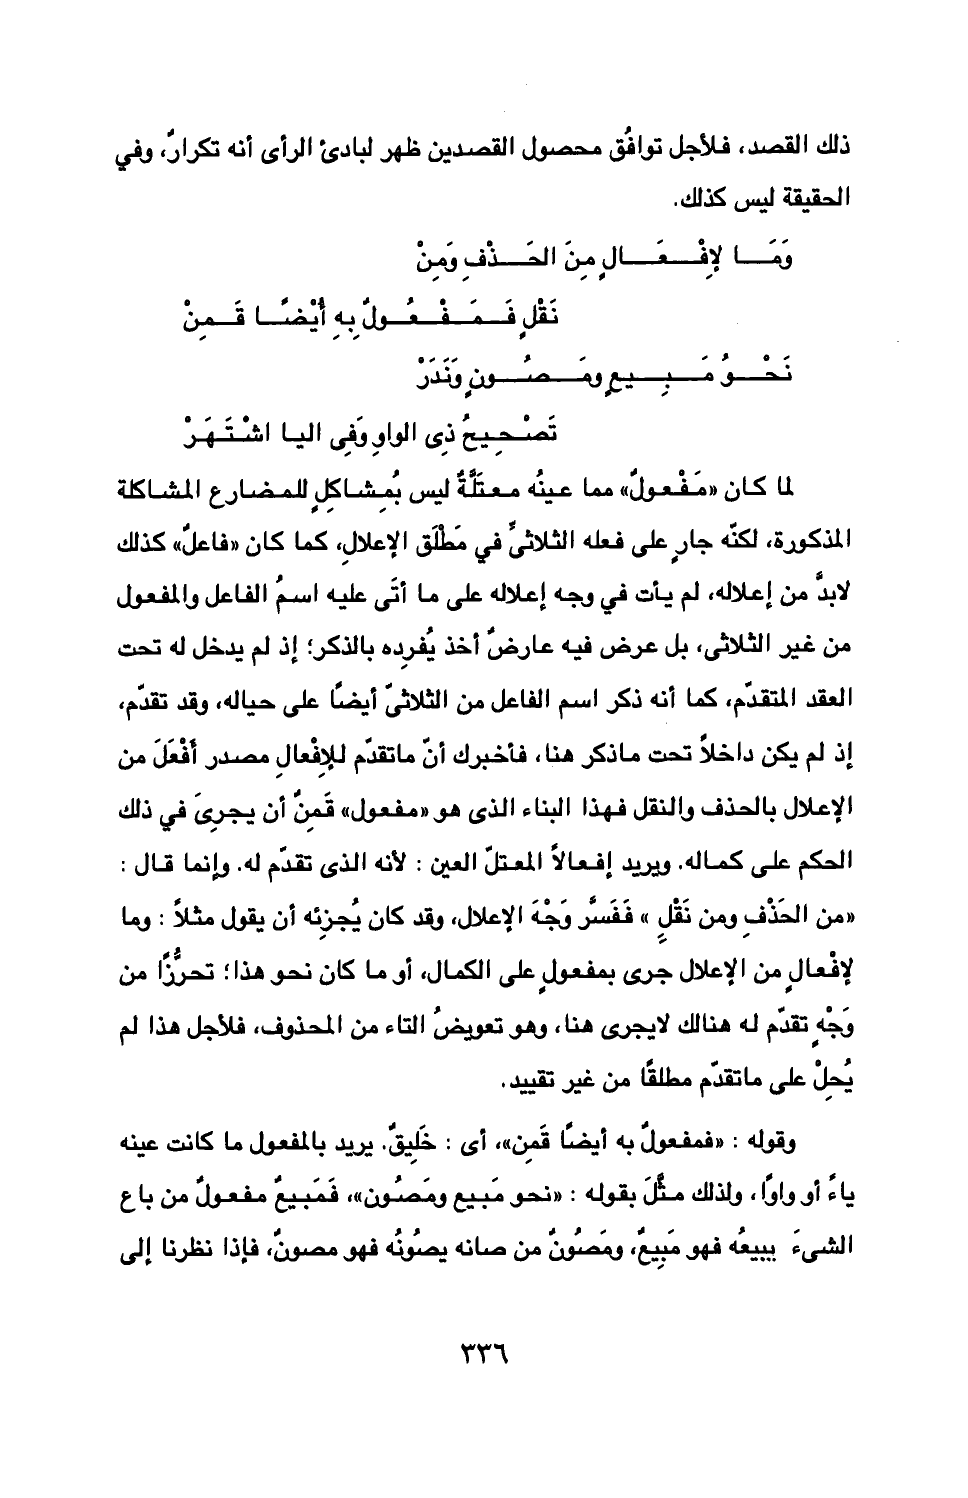 ذلك القصد، فلأجل توافُق محصول القصدين ظهر لبادئ الرأى أنه تكرارٌ، وفي
الحقيقة ليس كذلك.
وَمَا لإِفْعَالٍ مِنَ الحَذْفِ وَمِنْ
نَقْلٍ فَمَفْعُولٌ بِهِ أَيْضًا قَمِنْ
نَحْوُ مَبِيعٍ ومَصُونٍ وَنَدَرْ
تَصْحِيحُ ذِى الواوِ وَفِى اليا اشْتَهَرْ
لما كان «مَفْعولٌ» مما عينُه معتَلَّةٌ ليس بمُشاكلٍ للمضارع المشاكلة
المذكورة، لكنّه جارٍ على فعله الثلاثىِّ في مَطْلَق الإعلال، كما كان «فاعلٌ» كذلك
لابدَّ من إعلاله، لم يأت في وجه إعلاله على ما أتَى عليه اسمُ الفاعل والمفعول
من غير الثلاثى، بل عرض فيه عارضٌ أخذ يُفرده بالذكر؛ إذ لم يدخل له تحت
العقد المتقدّم، كما أنه ذكر اسم الفاعل من الثلاثىّ أيضًا على حياله، وقد تقدّم،
إذ لم يكن داخلاً تحت ماذكر هنا، فأخبرك أنّ ماتقدّم للإفْعالِ مصدر أَفْعَلَ من
الإعلال بالحذف والنقل فهذا البناء الذى هو «مفعول» قَمِنٌ أن يجرِىَ في ذلك
الحكم على كماله. ويريد إفعالاً المعتلّ العين : لأنه الذى تقدّم له. وإنما قال :
«من الحَذْفِ ومن نَقْلٍ» فَفَسَّر وَجْهَ الإعلال، وقد كان يُجزِئه أن يقول مثلاً : وما
لإفْعالٍ من الإعلال جرى بمفعولٍ على الكمال، أو ما كان نحو هذا؛ تحرُّزًا من
وَجْهٍ تقدّم له هنالك لايجرى هنا، وهو تعويضُ التاء من المحذوف، فلأجل هذا لم
يُحِلْ على ماتقدّم مطلقًا من غير تقييد.
وقوله : «فمفعولٌ به أيضًا قَمِن»، أى : خَلِيقٌ. يريد بالمفعول ما كانت عينه
ياءً أو واوًا، ولذلك مثَّلَ بقوله : «نحو مَبِيع ومَصُون»، فَمَبِيعٌ مفعولٌ من باع
الشىءَ يبيعُه فهو مَبِيعٌ، ومَصُونٌ من صانه يصُونُه فهو مصونٌ، فإذا نظرنا إلى
٣٣٦